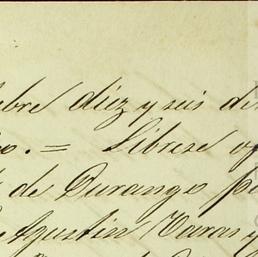 bre diez y seis de
o. = Librese of
de Durango p
Agustin Varas y